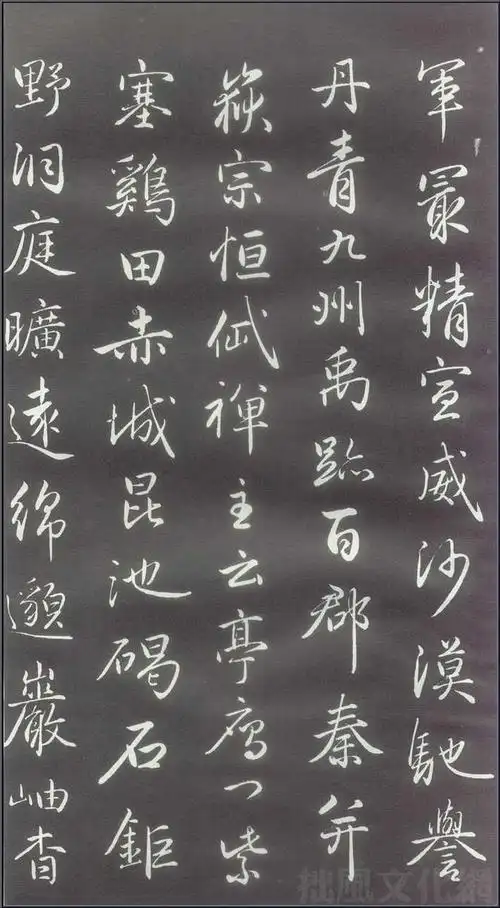 軍最精宣威沙漠馳譽
丹青九州禹跡百郡秦并
嶽宗恒岱禪主云亭雁門紫
塞鷄田赤城昆池碣石鉅
野洞庭曠遠綿邈巖岫杳
拙風文化網